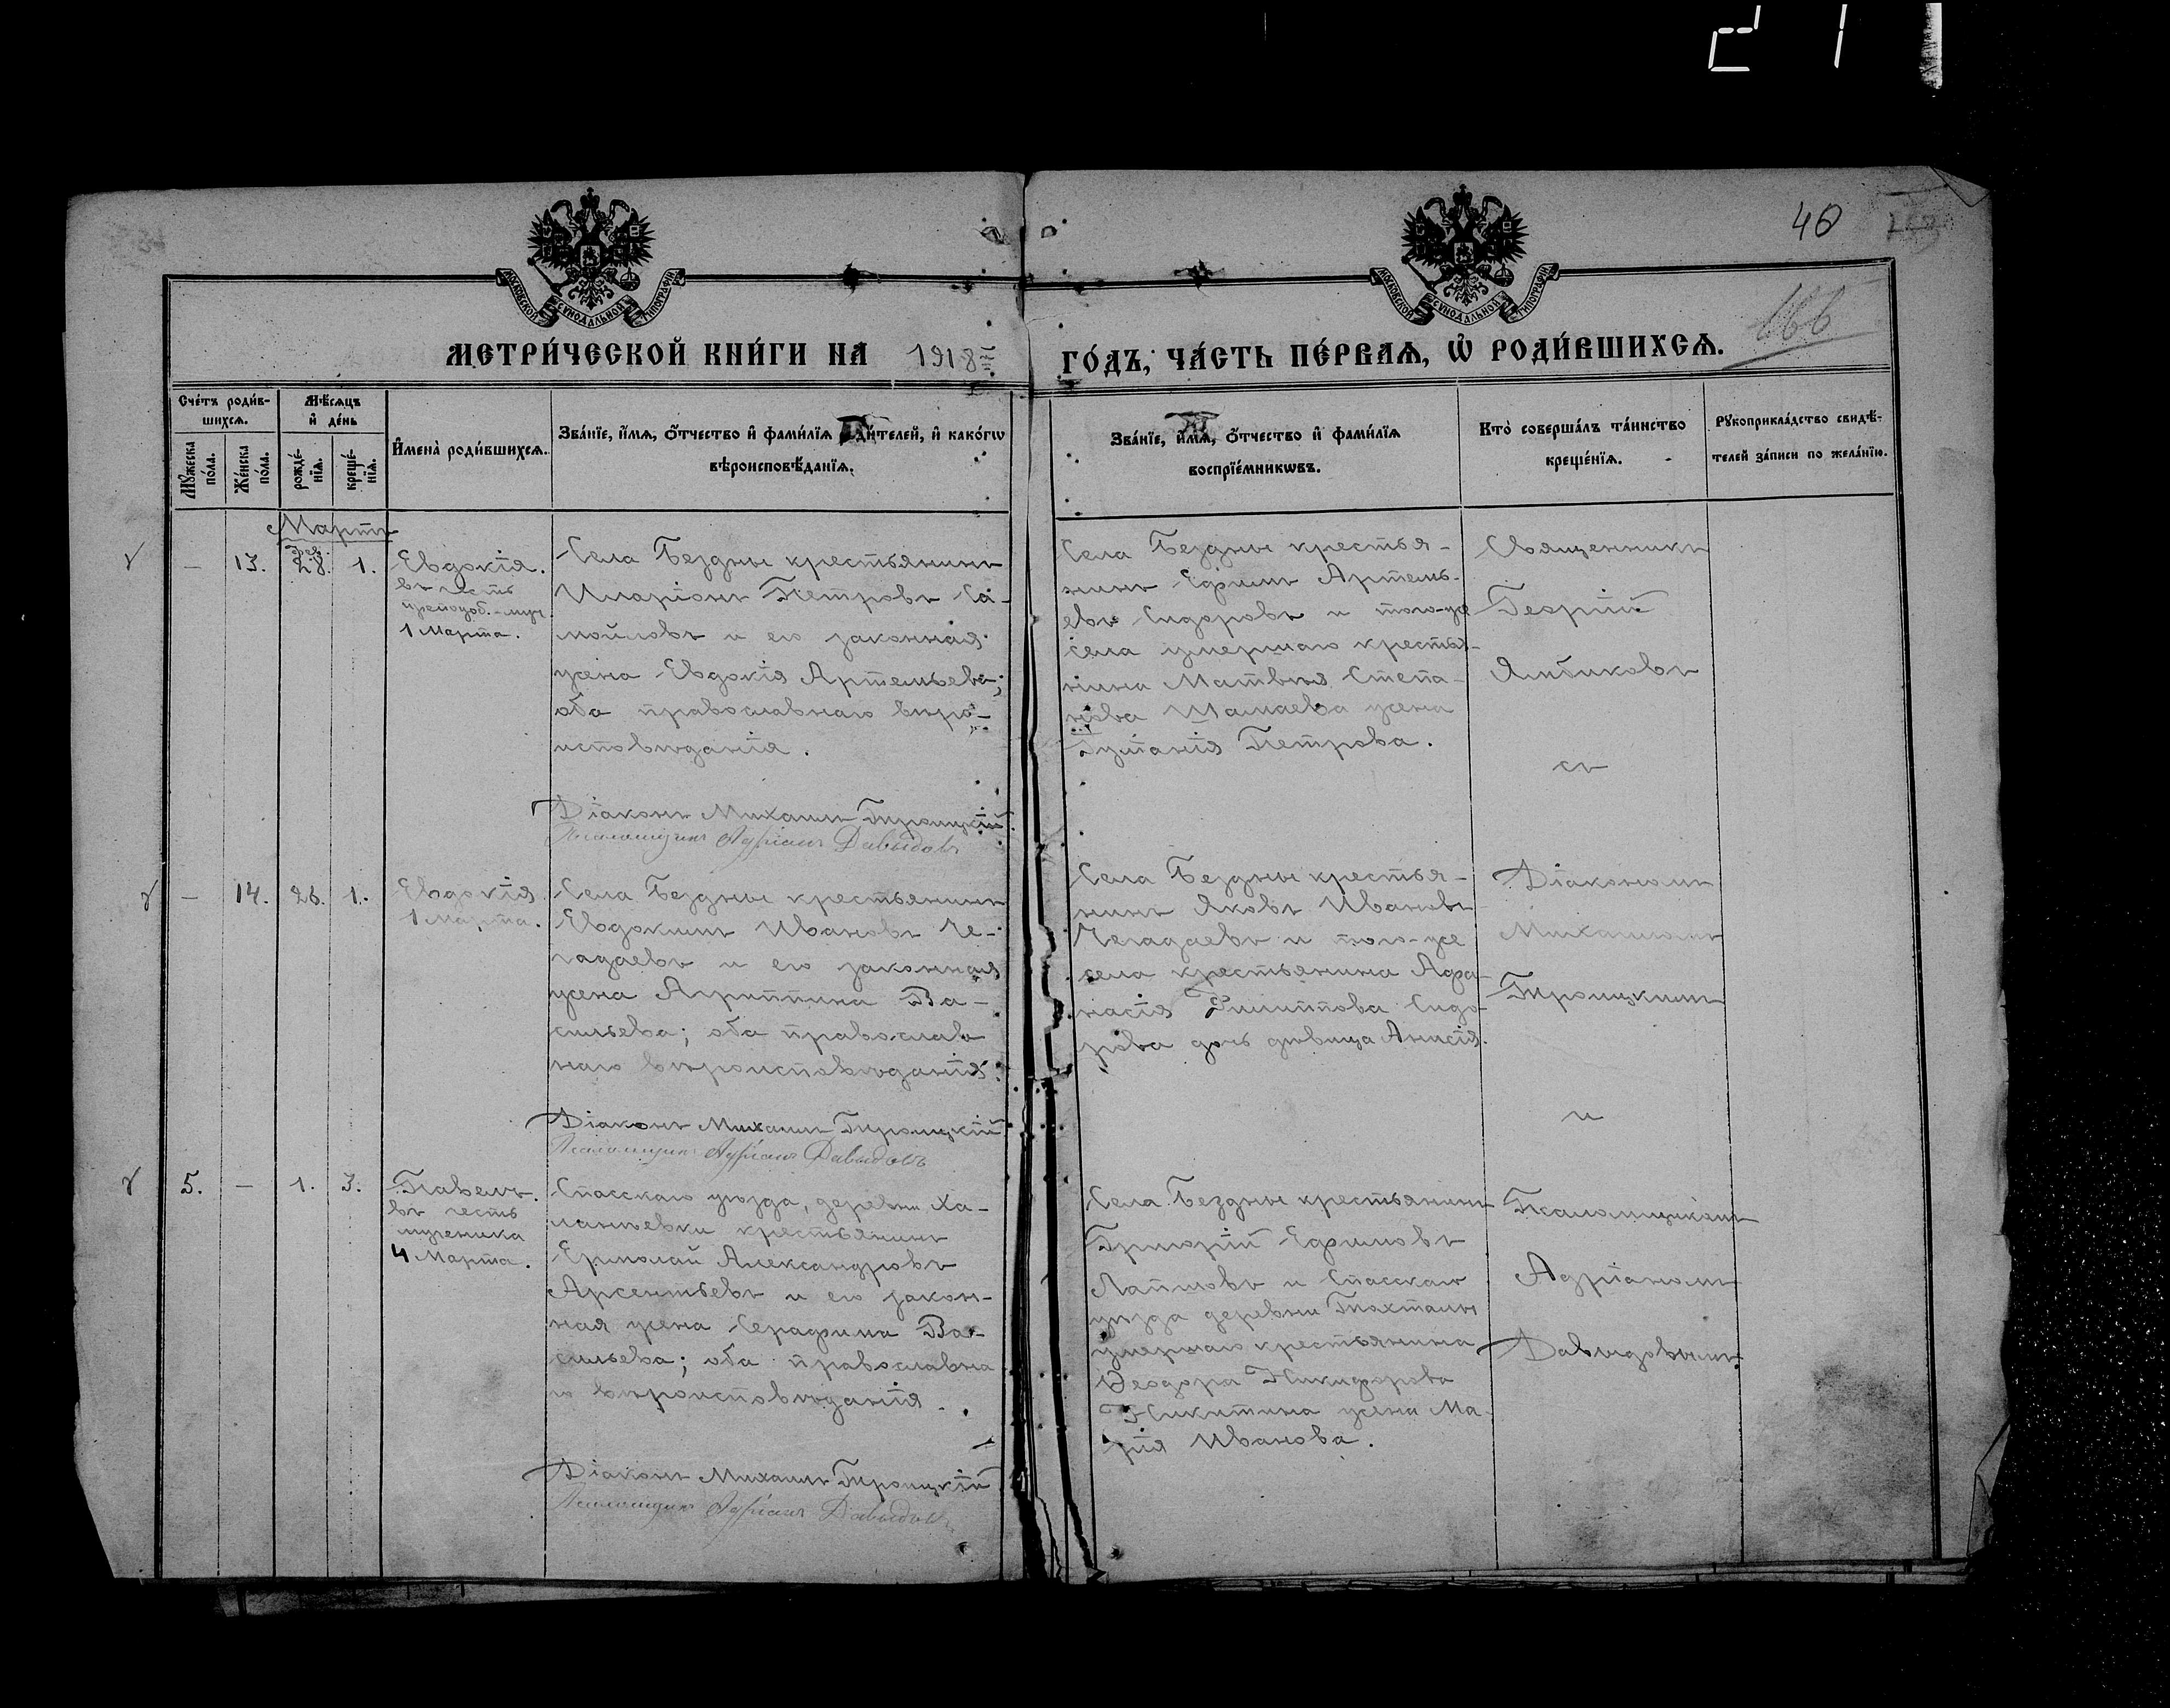 21
40
166
МОСКОВСКОЙ СѴНОДАЛЬНОЙ ТИПОГРАФІИ
МОСКОВСКОЙ СѴНОДАЛЬНОЙ ТИПОГРАФІИ
МЕТРИ́ЧЕСКОЙ КНИ́ГИ НА 1918 ГО́ДЪ, ЧА́СТЬ ПЕ́РВАѦ, Ѡ҆ РОДИ́ВШИХСѦ.
Сче́тъ роди́в-
шихсѧ.
Мꙋ́жеска по́ла.
Же́нска по́ла.
Мѣ́сѧцъ
и҆ де́нь
рожде́-
нїѧ.
креще́-
нїѧ.
И҆мена̀ роди́вшихсѧ.
Зва́нїе, и҆́мѧ, ѻ҆́тчество и҆ фами́лїѧ роди́телей, и҆ како́гѡ
вѣроисповѣ́данїѧ.
Зва́нїе, и҆́мѧ, ѻ҆́тчество и҆ фами́лїѧ
воспрїе́мникѡвъ.
Кто̀ соверша́лъ та́инство
креще́нїѧ.
Рꙋкоприкла́дство свидѣ́-
телей за́писи по жела́нїю.
Мартъ
— 13. фев. 28. 1.
Евдокія.
въ честь
преподоб.-муч.
1 Марта.
Села Бездны крестьянинъ
Иларіонъ Петровъ Са-
мойловъ и его законная
жена Евдокія Артемьева;
оба православнаго вѣро-
исповѣданія.
Діаконъ Михаилъ Троицкій.
Псаломщикъ Адріанъ Давыдовъ
Села Бездны крестья-
нинъ Ефимъ Артемь-
евъ Сидоровъ и того-же
села умершаго крестья-
нина Матвѣя Степа-
нова Шамаева жена
Петрова.
Священникъ
Георгій
Ямбиковъ
съ
— 14. 28. 1.
Евдокія
1 Марта.
Села Бездны крестьянинъ
Евдокимъ Ивановъ Че-
гадаевъ и его законная
жена Агриппина Ва-
сильева; оба православ
наго вѣроисповѣданія.
Діаконъ Михаилъ Троицкій
Псаломщикъ Адріанъ Давыдовъ
Села Бездны крестья-
нинъ Яковъ Ивановъ
Чегадаевъ и того-же
села крестьянина Афа-
насія Филиппова Сидо-
рова дочь дѣвица Анисія.
Діакономъ
Михаиломъ
Троицкимъ
и
5. — 1. 3.
Павелъ.
въ честь
мученика
4 Марта.
Спасскаго уѣзда, деревни Ха-
лангѣевки крестьянинъ
Ермолай Александровъ
Арсентьевъ и его закон-
ная жена Серафима Ва-
сильева; оба православна
го вѣроисповѣданія.
Діаконъ Михаилъ Троицкій
Псаломщикъ Адріанъ Давыдовъ
Села Бездны крестьянинъ
Григорій Ефимовъ
Лаптовъ и Спасскаго
уѣзда деревни Тюхталы
умершаго крестьянина
Ѳеодора Никифорова
Никитина жена Ма-
рія Иванова.
Псаломщикомъ
Адріаномъ
Давыдовымъ.